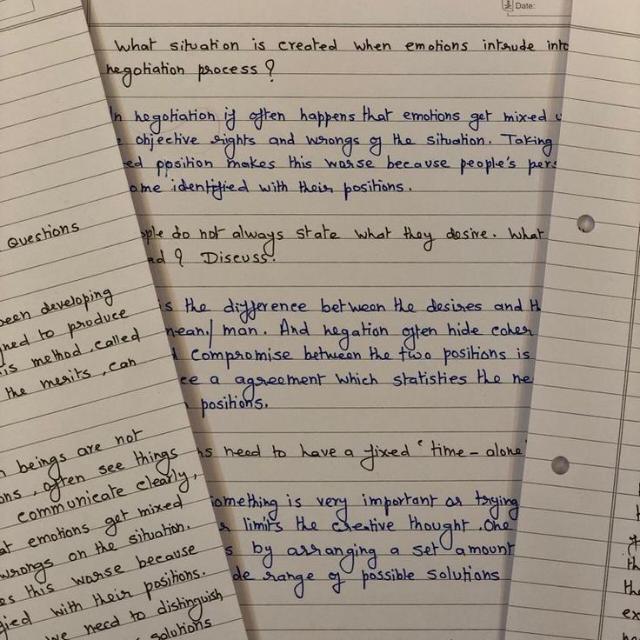 Date:
What situation is created when emotions intrude into
negotiation process?
In negotiation if often happens that emotions get mixed
objective rights and wrongs of the situation. Taking
position makes this worse because people's
identified with their positions.
do not always state what they desire. What
? Discuss.
is the difference between the desires and
man. And negation often hide
compromise between the two positions is
a agreement which statisties the
positions.
need to have a fixed "time-alone"
something is very important or trying
limits the creative thought. One
by arranging a set amount
range of possible solutions
Questions
been developing
to produce
is method, called
the merits, can
beings are not
, often see things
communicate clearly,
emotions get mixed
wrongs on the situation.
this worse because
with their positions.
we need to distinguish
solutions